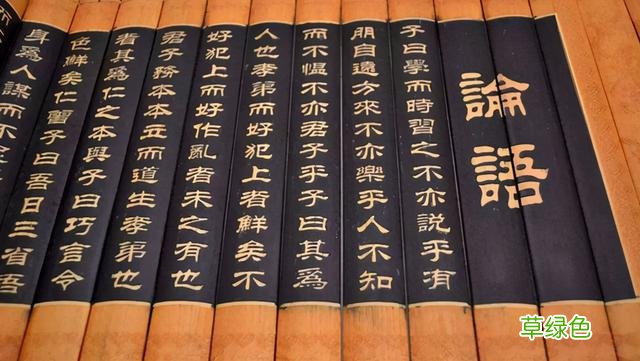 論語
子曰學而時習之不亦說乎有
朋自遠方來不亦樂乎人不知
而不慍不亦君子乎子曰其爲
人也孝弟而好犯上者鮮矣不
好犯上而好作亂者未之有也
君子務本本立而道生孝弟也
者其爲仁之本與子曰巧言令
色鮮矣仁曾子曰吾日三省吾
身爲人謀而不
草绿色